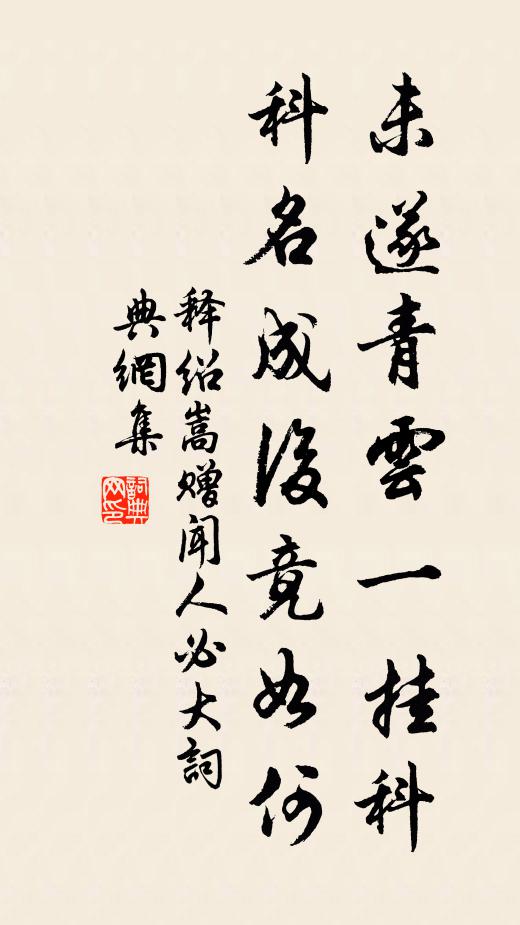 未遂青雲一挂科
科名成後竟如何
释绍嵩赠闻人必大詞
典網集
詞典网印